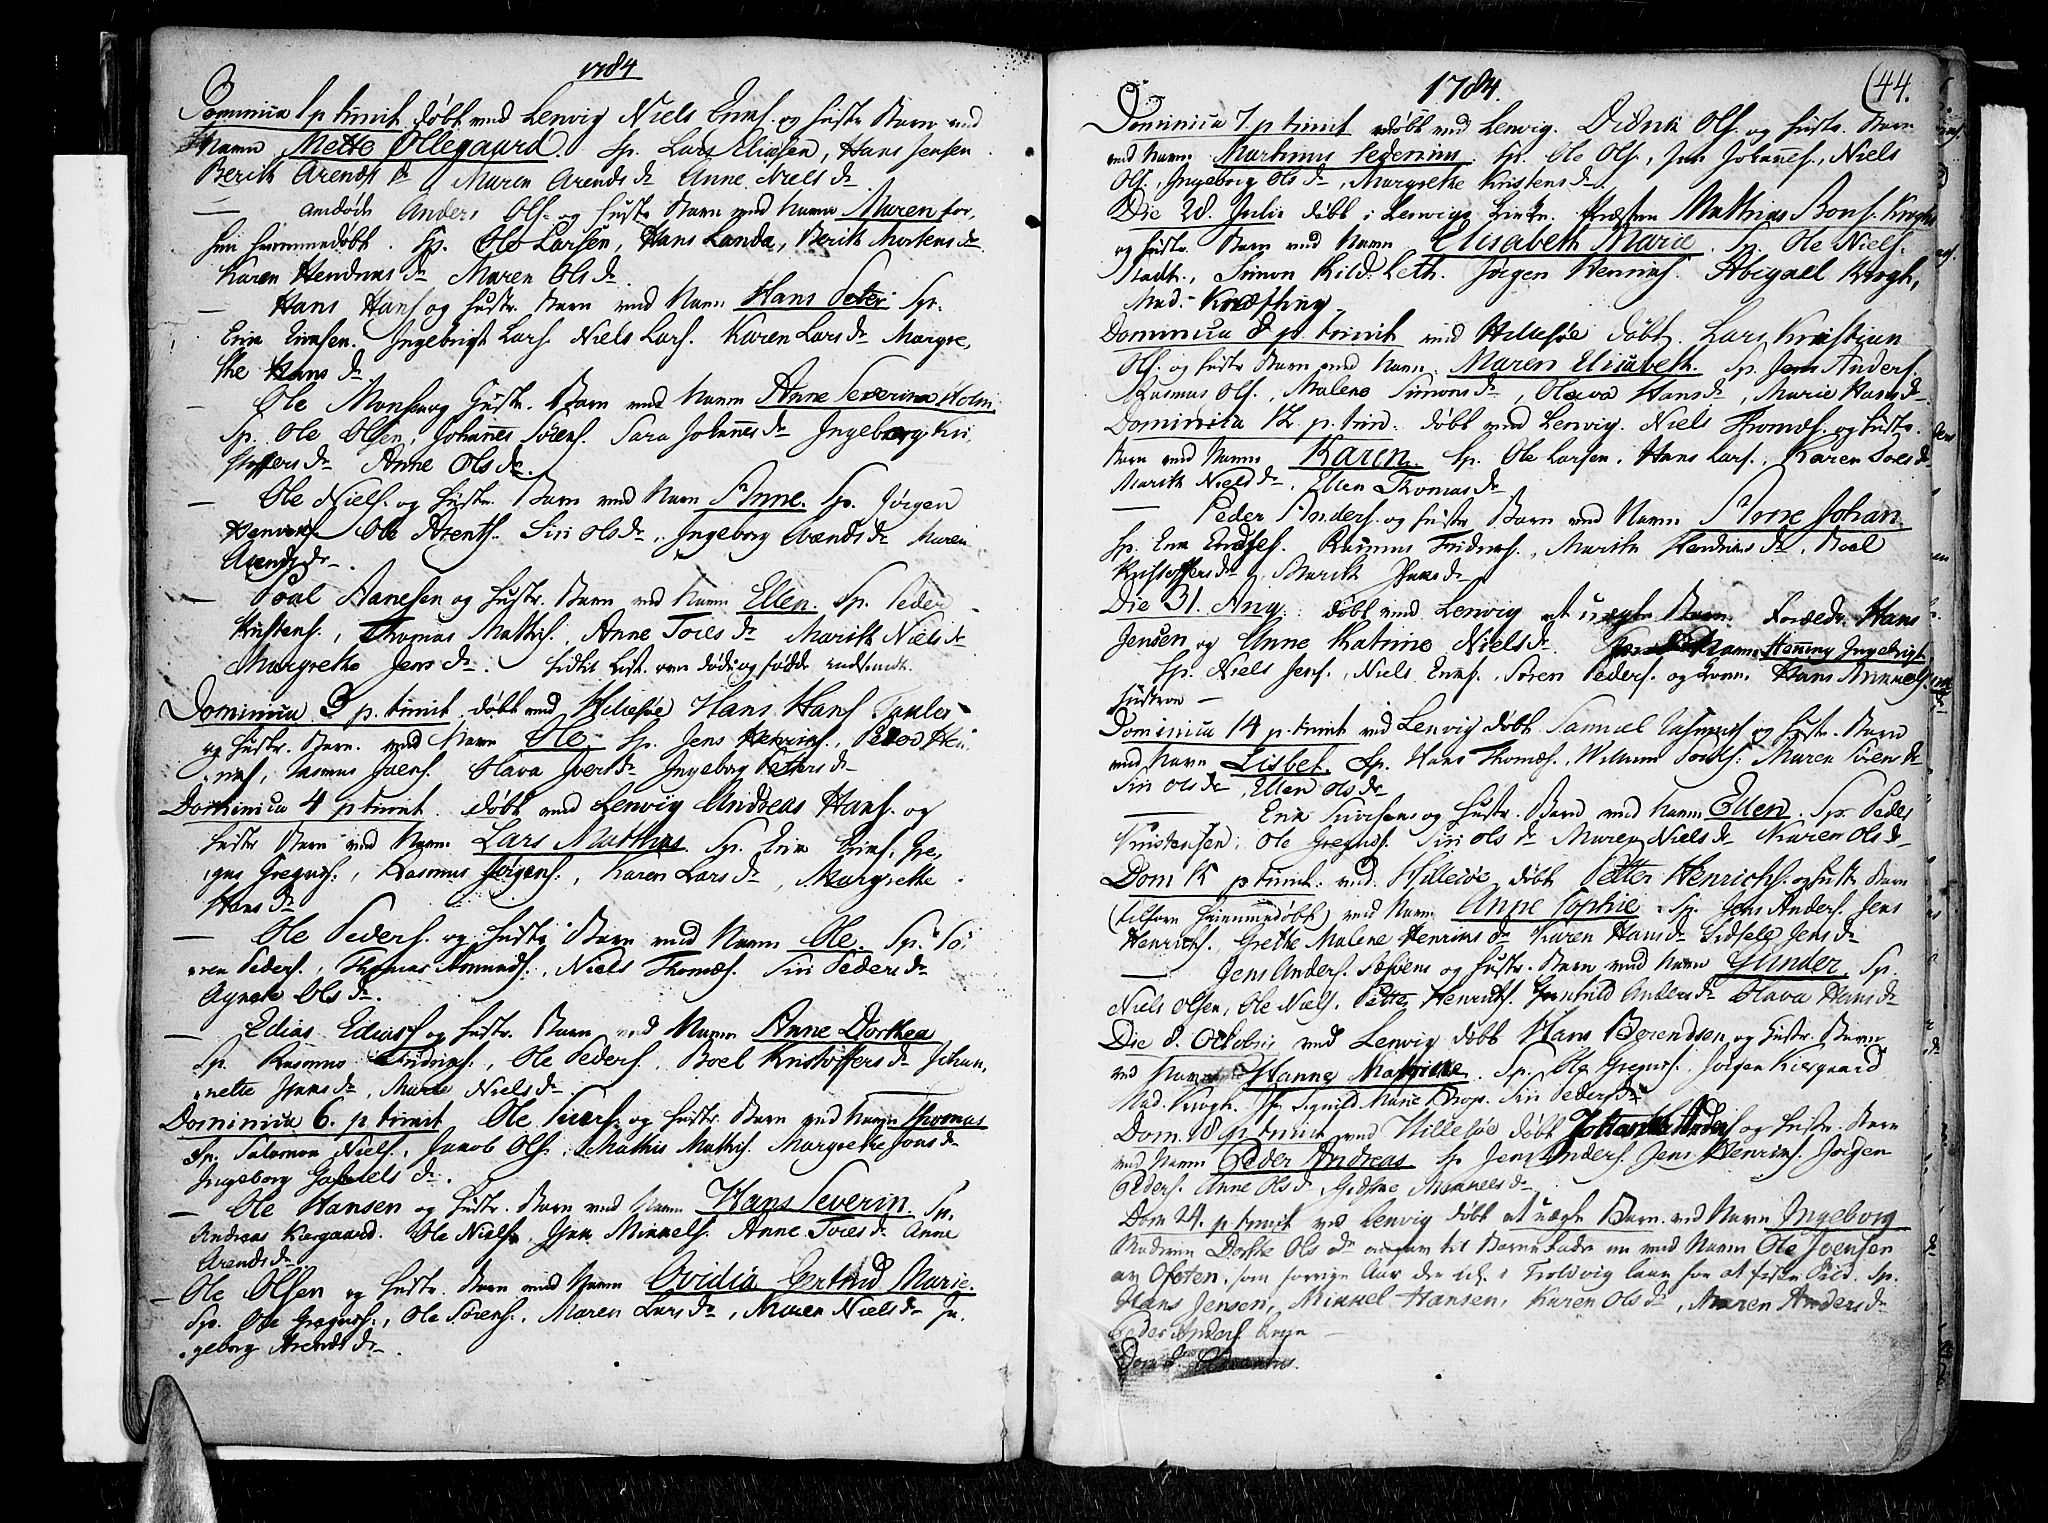 1784
Dominica 1 p trinit døbt ved Lenvig Niels Erichs. og hustr Barn ved
Navn Mette Ollegaard. Sp. Lars Eliasen, Hans Jensen
Berith Arends dr, Maren Arends dr Anne Niels dr
— Anders Ols. og hustr Barn med Navn Maren for,
hen hiemmedøbt. Sp. Ole Larsen, Hans Landa, Berith Mortens dr
Karen Hendrics dr Maren Ols dr.
— Hans Hans og hustr. Barn med Navn Hans Peter Sp.
Erik Ericsen. Ingebrigt Lars. Niels Lars. Karen Lars dr Margre,
the Hans dr
— Ole Monsen og hustr. Barn med Navn Anne Severina Holm
Sp. Ole Olsen, Johannes Sørens. Sara Johannes dr Ingeborg Kri,
stoffers dr Anne Ols dr.
— Ole Niels. og hustr. Barn med Navn Anne. Sp. Jørgen
Henrichs. Ole Arents. Siri Ols dr, Ingeborg Arends dr Maren
Arends dr.
— Poul Hansen og hustr. Barn med Navn Ellen. Sp. Peder
Kristens., Thomas Mathis., Anne Tores dr Marith Niels dr
Margrethe Jens dr. sidste List over døde og fødde indsendt.
Dominica 3 p. trinit. døbt ved Hillesøe Hans Hans
og hustr. Barn. med Navn Ole Sp. Jens Henrics., Peder Hen
rics, Rasmus Ivers. Olava Ivers dr Ingeborg Petters dr
Dominica 4 p trinit. døbt ved Lenvig Andreas Hans. og
hustr Barn med Navn Lars Mathias Sp. Erik Erics, Gre,
gus Gregus., Rasmus Jørgens., Karen Lars dr, Margrethe
Hans dr
— Ole Peders. og hustr Barn med Navn Ole. Sp. Sø,
ren Peders., Thomas Amunds., Niels Thomæs. Siri Peders dr
Agnete Ols dr.
— Elias Eliass og hustr. Barn med Navn Anne Dorthea
Sp. Rasmus Fridrics., Ole Peders., Boel Kristoffers dr Johan,
nette Jens dr, Maria Niels dr
Dominica 6. p trinit Ole Ivers. og hustr Barn med Navn Thomas
Sp. Salomon Niels., Jacob Ols., Mathis Mathis. Margrethe Jons dr
Ingeborg Gabriels dr.
— Ole Hansen og hustr. Barn med Navn Hans Severin Sp.
Andreas Kiergaard. Ole Niels, Jens Mikkels. Anne Tores dr Anne
Arends dr
— Ole Olsen og hustr. Barn med Navn Ovidia Gertrud Marie.
Sp. Ole Gregus., Ole Sørens., Maren Lars dr, Maren Niels dr In,
geborg Arends dr.
1784.
(44.
Dominica 7 p trinit døbt ved Lenvig. Didrik Ols. og hustr. Barn
med Navn Martinus Pederius. Sp. Ole Ols., Jens Johannes., Niels
Ols., Ingeborg Ols dr, Margrethe Kristens dr.
Die 28. Julii døbt i Lenvigs Kirke. Præsten Mathias Bons. Kroghs
og hustr. Barn med Navn Elisabeth Marie. Sp. Ole Niels.
Simon Kild. Leth. Jørgen Henrics. Abigael Krogh,
Mad. Knæfting
Dominica 8 p. trinit ved Hillesøe døbt. Lars Kristian
Ols. og hustr Barn med Navn. Maren Elisabeth. Sp. Jens Anders.
Rasmus Ols., Malene Simons dr, Olava Hans dr, Marie Hans dr.
Dominica 12. p. trin. døbt ved Lenvig. Niels Thomæs. og hustr.
Barn med Navn Karen. Sp. Ole Larsen, Hans Lars., Karen Tores dr
Marith Niels dr, Ellen Thomas dr
— Peder Anders. og hustr Barn med Navn Anne Johan.
Sp. Erik Rasmus Fridrics., Marith Hendrics dr, Boel
Kristoffers dr, Marith Hans dr
Die 31. Aug. døbt ved Lenvig et uægte Barn. Foræld. Hans
Jensen og Anne Katrine Niels dr. Navn Henning Ingebrigt
Sp. Niels Jens., Niels Erics., Søren Peders. og Kone. Hans Mikkels.
hustroe —
Dominica 14 p trinit ved Lenvig døbt Samuel Rasmus. og hustr. Barn
med Navn Lisbet. Sp. Hans Thomæs. Wilhelm Maren Sørens dr
Siri Ols dr, Ellen Ols dr
— Erik Siversen og hustr. Barn med Navn Ellen. Sp. Peder
Kristensen, Ole Gregus. Siri Ols dr Maren Niels dr Karen Ols dr
Dom 15 p trinit. ved. Hillesøe døbt Petter Henrichs. og hustr Barn
(tilforn hiemmedøbt) med Navn Anne Sophie. Sp. Jens Anders. Jens
Henrichs. Grethe Malene Henrics dr Karen Hans dr Sidsele Jens dr
— Jens Anders. og hustr. Barn med Navn Gunder. Sp.
Niels Olsen, Ole Niels. Petter Henrichs. Gunhild Anders dr Olava Hans dr
Die 8. Octobris ved Lenvig døbt Hans Berendsen og hustr. Barn
med Navn Hanne Sp. Ole Gregus. Jørgen Kiergaard
Mad. Krogh. Jfr Sigvild Marie Drejer. Siri Peders dr
Dom. 18 p trinit ved Hillesøe døbt Johannes Anders og hustr. Barn
med Navn Peder Andreas Sp Jens Anders. Jens Henrics. Jørgen
Peders. Anne Ols dr Mikkels dr
Dom 24. p trinit ved Lenvig døbt et uægte Barn. ved Navn Ingeborg
Moderen Dorthe Ols dr angav til Barnefader en med Navn Ole Joensen
av Ofoten, som forrige Aar der ude i Troldvig laae for at fiske Sild. Sp.
Hans Jensen, Mikkel Hansen, Karen Ols dr, Maren Anders dr
Peder Anders.